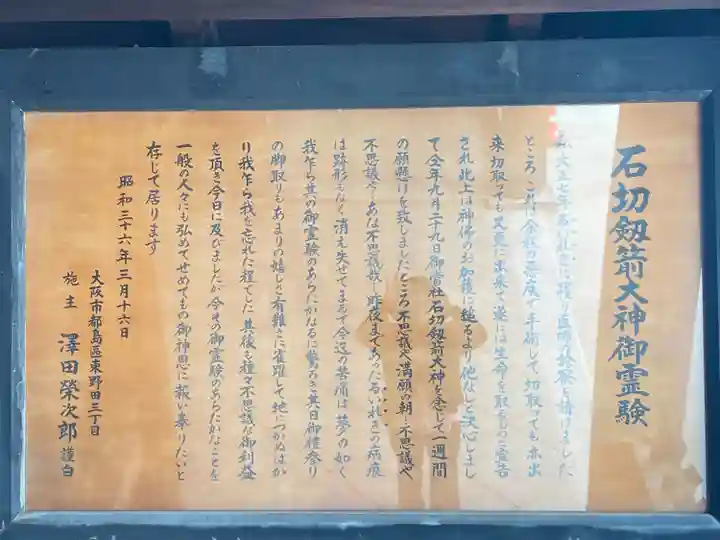 石切剱箭大神御霊験
私大正七年るい れきに罹り医師の診察を請けました
ところ これは全程の悪疾で手術して 切取っても亦出
来 切取っても又更に出来て遂には生命を取るものと宣告
され 此上は神佛のお加護に縋るより他なしと決心しまし
て仝年九月二十九日御當社石切剱箭大神を念じて一週間
の願懸けを致しましたところ 不思議や満願の朝 不思議や
不思議や あな不思議哉 昨夜まであったるいれきの病痕
は跡形もなく消え失せてまるで今迄の苦痛は夢の如く
我乍ら其の御霊験のあらたかなるに驚ろき 其日御禮参り
の脚取りもあまりの嬉しと有難さに雀躍して地につかぬばか
り 我乍ら我を忘れた程でした 其後も種々不思議な御利益
を頂き今日に及びましたが 今その御霊験のあらたかなことを
一般の人々にも弘めてせめてもの御神恩に報い奉りたいと
存じて居ります
昭和三十六年三月十六日
大阪市都島區東野田三丁目
施主 澤田榮次郎 謹白